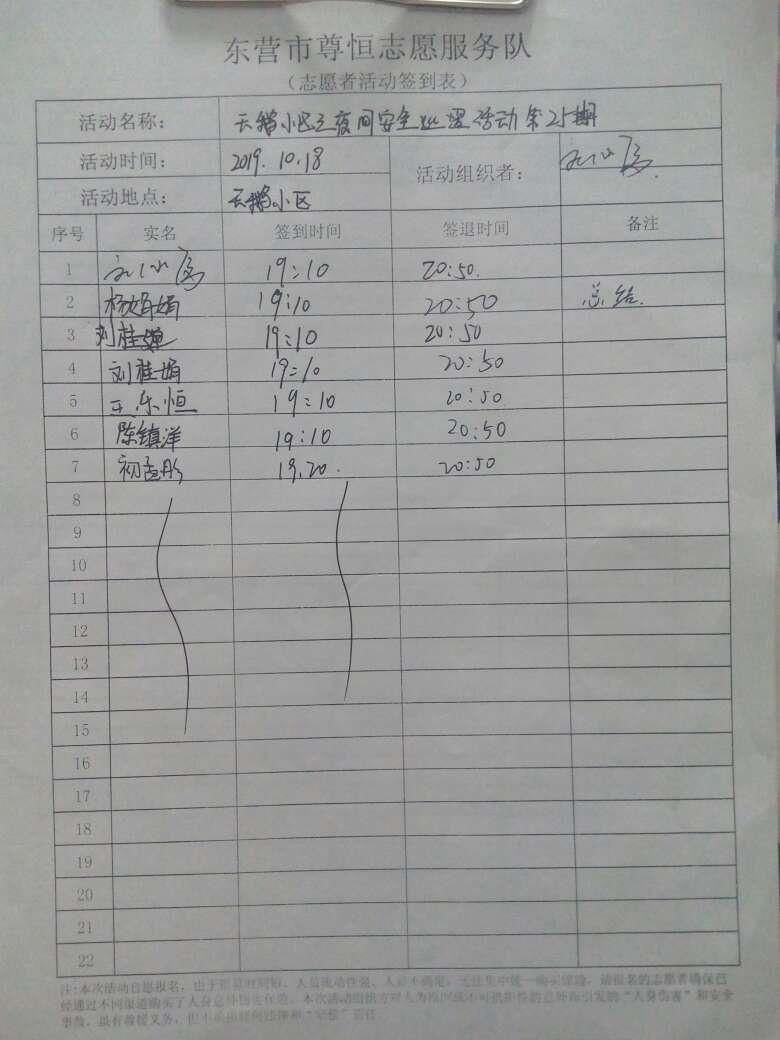 东营市尊恒志愿服务队
（志愿者活动签到表）
活动名称： 天鹅小区夜间安全巡逻活动第25期
活动时间： 2019.10.18 活动组织者：
活动地点： 天鹅小区
序号 实名 签到时间 签退时间 备注
1 19:10 20:50.
2 杨娟娟 19:10 20:50 总结.
3 刘桂 19:10 20:50
4 刘桂娟 19:10 20:50
5 王乐恒 19:10 20:50
6 陈镇洋 19:10 20:50
7 初孟彤 19.20. 20:50
8
9
10
11
12
13
14
15
16
17
18
19
20
21
22
注:本次活动自愿报名，由于 人员流动性强、人员不确定，无法集中统一购买保险，请报名的志愿者确保已
经通过不同渠道购买了人身意外伤害保险。本次活动组织方对人为 或不可抗拒 的意外 引发的“人身伤害”和安全
事故，虽有救援义务，但不承担任何法律和 责任。